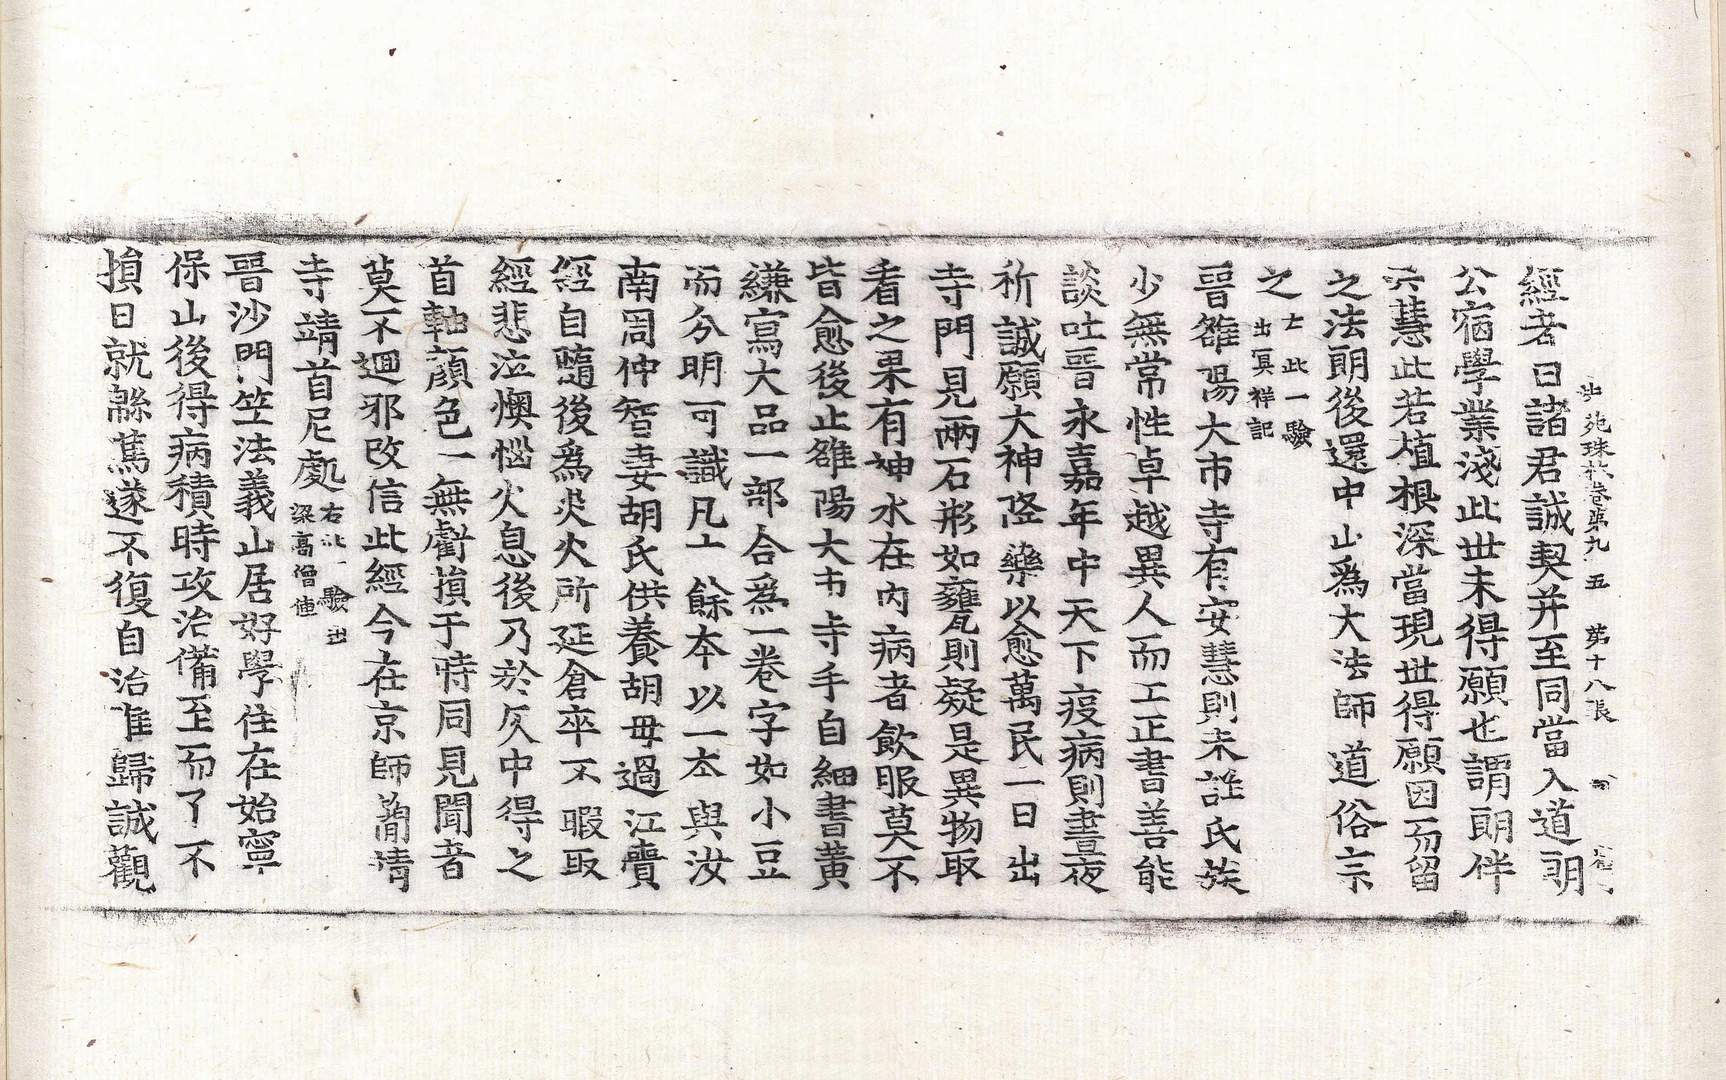 苑珠林卷第九十五 第十八張
經者曰諸君誠契并至同當入道朗
公宿學業淺此世未得願也謂朗伴
云慧此若植根深當現世得願因而留
之法朗後還中山爲大法師道俗宗
之
右此一驗
出冥祥記
晉雒陽大市寺有安慧則未詳氏族
少無常性卓越異人而工正書善能
談吐晉永嘉年中天下疫病則晝夜
祈誠願大神降藥以愈萬民一日出
寺門見兩石形如甕則疑是異物取
看之果有神水在內病者飲服莫不
皆愈後止雒陽大市寺手自細書黃
縑寫大品一部合爲一卷字如小豆
而分明可識凡十餘本以一本與汝
南周仲智妻胡氏供養胡母過江賷
經自隨後爲災火所延倉卒不暇取
經悲泣懊惱火息後乃於灰中得之
首軸顏色一無虧損于時同見聞者
莫不迴邪改信此經今在京師簡靖
寺靖首尼處
右此一驗出
梁高僧傳
晉沙門竺法義山居好學住在始寧
保山後得病積時攻治備至而了不
損日就緜篤遂不復自治唯歸誠觀